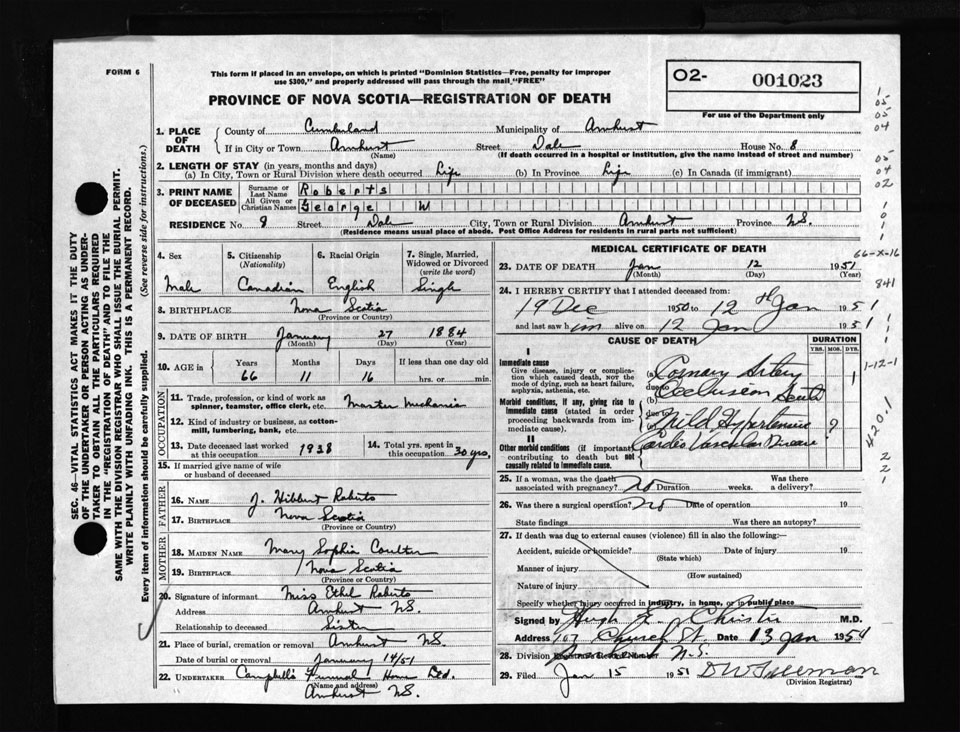 FORM 6
This form if placed in an envelope, on which is printed "Dominion Statistics—Free, penalty for improper
use $300," and properly addressed will pass through the mail "FREE"
O2- 001023
For use of the Department only
PROVINCE OF NOVA SCOTIA—REGISTRATION OF DEATH
1. PLACE OF DEATH
County of Cumberland Municipality of Amherst
If in City or Town Amherst Street Dale House No. 8
(Name) (If death occurred in a hospital or institution, give the name instead of street and number)
2. LENGTH OF STAY (in years, months and days)
(a) In City, Town or Rural Division where death occurred Life (b) In Province Life (c) In Canada (if immigrant)
3. PRINT NAME OF DECEASED
Surname or Last Name Roberts
All Given or Christian Names George W
RESIDENCE No. 8 Street Dale City, Town or Rural Division Amherst Province N.S.
(Residence means usual place of abode. Post Office Address for residents in rural parts not sufficient)
4. Sex Male
5. Citizenship (Nationality) Canadian
6. Racial Origin English
7. Single, Married, Widowed or Divorced (write the word) Single
8. BIRTHPLACE Nova Scotia
(Province or Country)
9. DATE OF BIRTH January 27 1884
(Month) (Day) (Year)
10. AGE in Years Months Days If less than one day old
66 11 16 hrs. or min.
OCCUPATION
11. Trade, profession, or kind of work as spinner, teamster, office clerk, etc. Master Mechanic
12. Kind of industry or business, as cotton-mill, lumbering, bank, etc.
13. Date deceased last worked 1938
14. Total yrs. spent in occupation 30 yrs.
15. If married give name of wife or husband of deceased
FATHER
16. NAME J. Hibbert Roberts
17. BIRTHPLACE Nova Scotia
(Province or Country)
MOTHER
18. MAIDEN NAME Mary Sophia Coulter
19. BIRTHPLACE Nova Scotia
(Province or Country)
20. Signature of informant Miss Ethel Roberts
Address Amherst N.S.
Relationship to deceased Sister
21. Place of burial, cremation or removal Amherst N.S.
Date of burial or removal January 14/51
22. UNDERTAKER Campbell's Funeral Home Ltd.
(Name and address)
Amherst N.S.
MEDICAL CERTIFICATE OF DEATH
23. DATE OF DEATH Jan 12 1951
(Month) (Day) (Year)
24. I HEREBY CERTIFY that I attended deceased from:
19 Dec 1950 to 12th Jan 1951
and last saw him alive on 12 Jan 1951
CAUSE OF DEATH DURATION
YRS. MOS. DYS.
I
Immediate cause
Give disease, injury or complication which caused death, NOT the mode of dying, such as heart failure, asphyxia, asthenia, etc.
(a) Coronary Artery
due to Occlusion Acute 1
(b)
Morbid conditions, if any, giving rise to immediate cause (stated in order proceeding backwards from immediate cause).
due to
(c) Mild Hypertensive ?
II
Other morbid conditions (if important) contributing to death but not causally related to immediate cause.
Cardio Vascular Disease
25. If a woman, was the death associated with pregnancy? No Duration weeks. Was there a delivery?
26. Was there a surgical operation? No Date of operation 19
State findings Was there an autopsy?
27. If death was due to external causes (violence) fill in also the following:—
Accident, suicide or homicide? Date of injury 19
(State which)
Manner of injury
(How sustained)
Nature of injury
Specify whether injury occurred in industry, in home, or in public place
Signed by Hugh E. Christie M.D.
Address 107 Church St. Date 13 Jan 1951
28. Division Registrar's Record Number N.S.
29. Filed Jan 15 1951
(Division Registrar)
SEC. 46—VITAL STATISTICS ACT MAKES IT THE DUTY
OF THE UNDERTAKER OR PERSON ACTING AS UNDER-
TAKER TO OBTAIN ALL THE PARTICULARS REQUIRED
IN THE "REGISTRATION OF DEATH" AND TO FILE THE
SAME WITH THE DIVISION REGISTRAR WHO SHALL ISSUE THE BURIAL PERMIT.
WRITE PLAINLY WITH UNFADING INK. THIS IS A PERMANENT RECORD.
Every item of information should be carefully supplied. (See reverse side for instructions.)
1
05
05
04
05
04
02
1
0
1
1
66-X-16
841
1
1
1-12-1
420.1
2
2
1